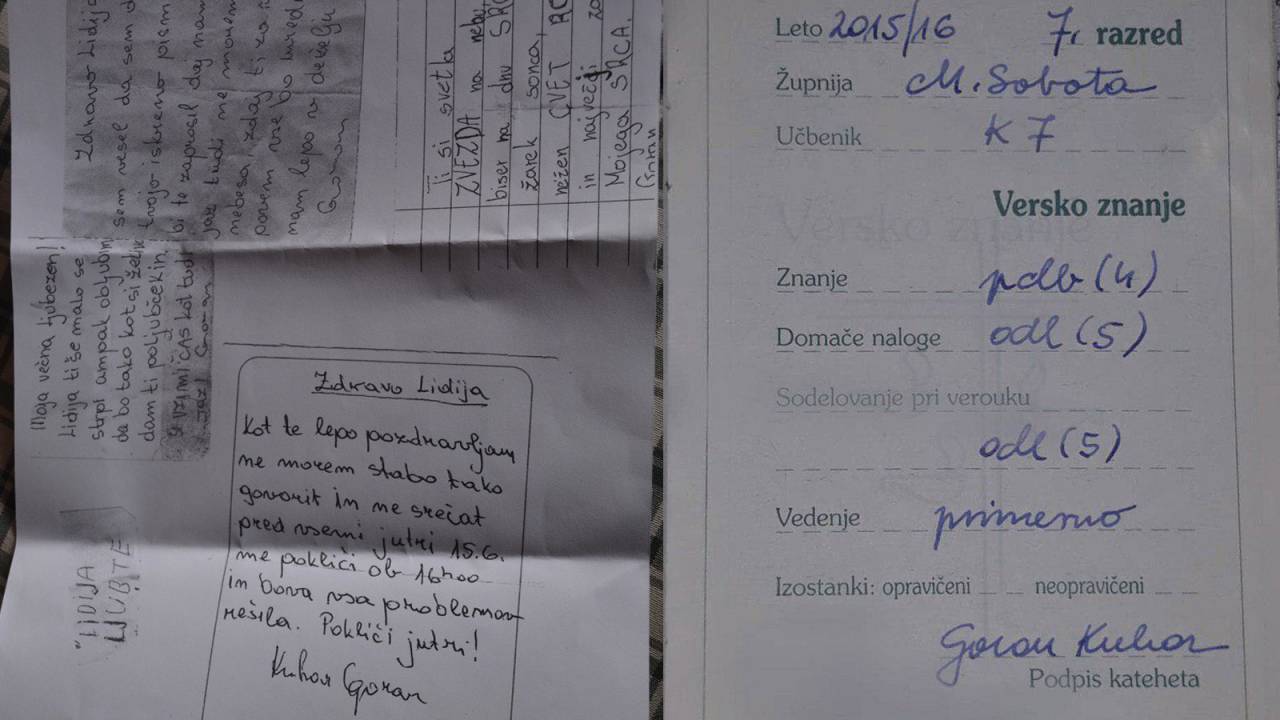 Zdravo Lidija
sem vesel da sem d
tvojo iskreno pism
bi te zaprosil daj nam
jaz tudi ne morem
nebesa, zdaj ti
povem vse bo uredi
nam lepo v deželi
Goran
Ti si svetla
ZVEZDA na nebu,
biser na dnu SRC
žarek sonca,
nežen CVET RO
in največji
Mojega SRCA.
Goran
Moja večna ljubezen!
Lidija ti še malo se
strpi ampak obljubim
da bo tako kot si želiš
dam ti poljubčekin,
VZIMI ČAS kot tudi
jaz! Goran
"LIDIJA
LJUBI TE
Zdravo Lidija
Kot te lepo pozdravljam
ne morem slabo tako
govorit in ne srečat
pred vsemi jutri 15.6.
me pokliči ob 16h00
in bova vsa problemov
rešila. Pokliči jutri!
Kuhar Goran
Leto 2015/16 7. razred
Župnija M. Sobota
Učbenik K 7
Versko znanje
Znanje pdb (4)
Domače naloge odl (5)
Sodelovanje pri verouku
odl (5)
Vedenje primerno
Izostanki: opravičeni neopravičeni
Goran Kuhar
Podpis kateheta